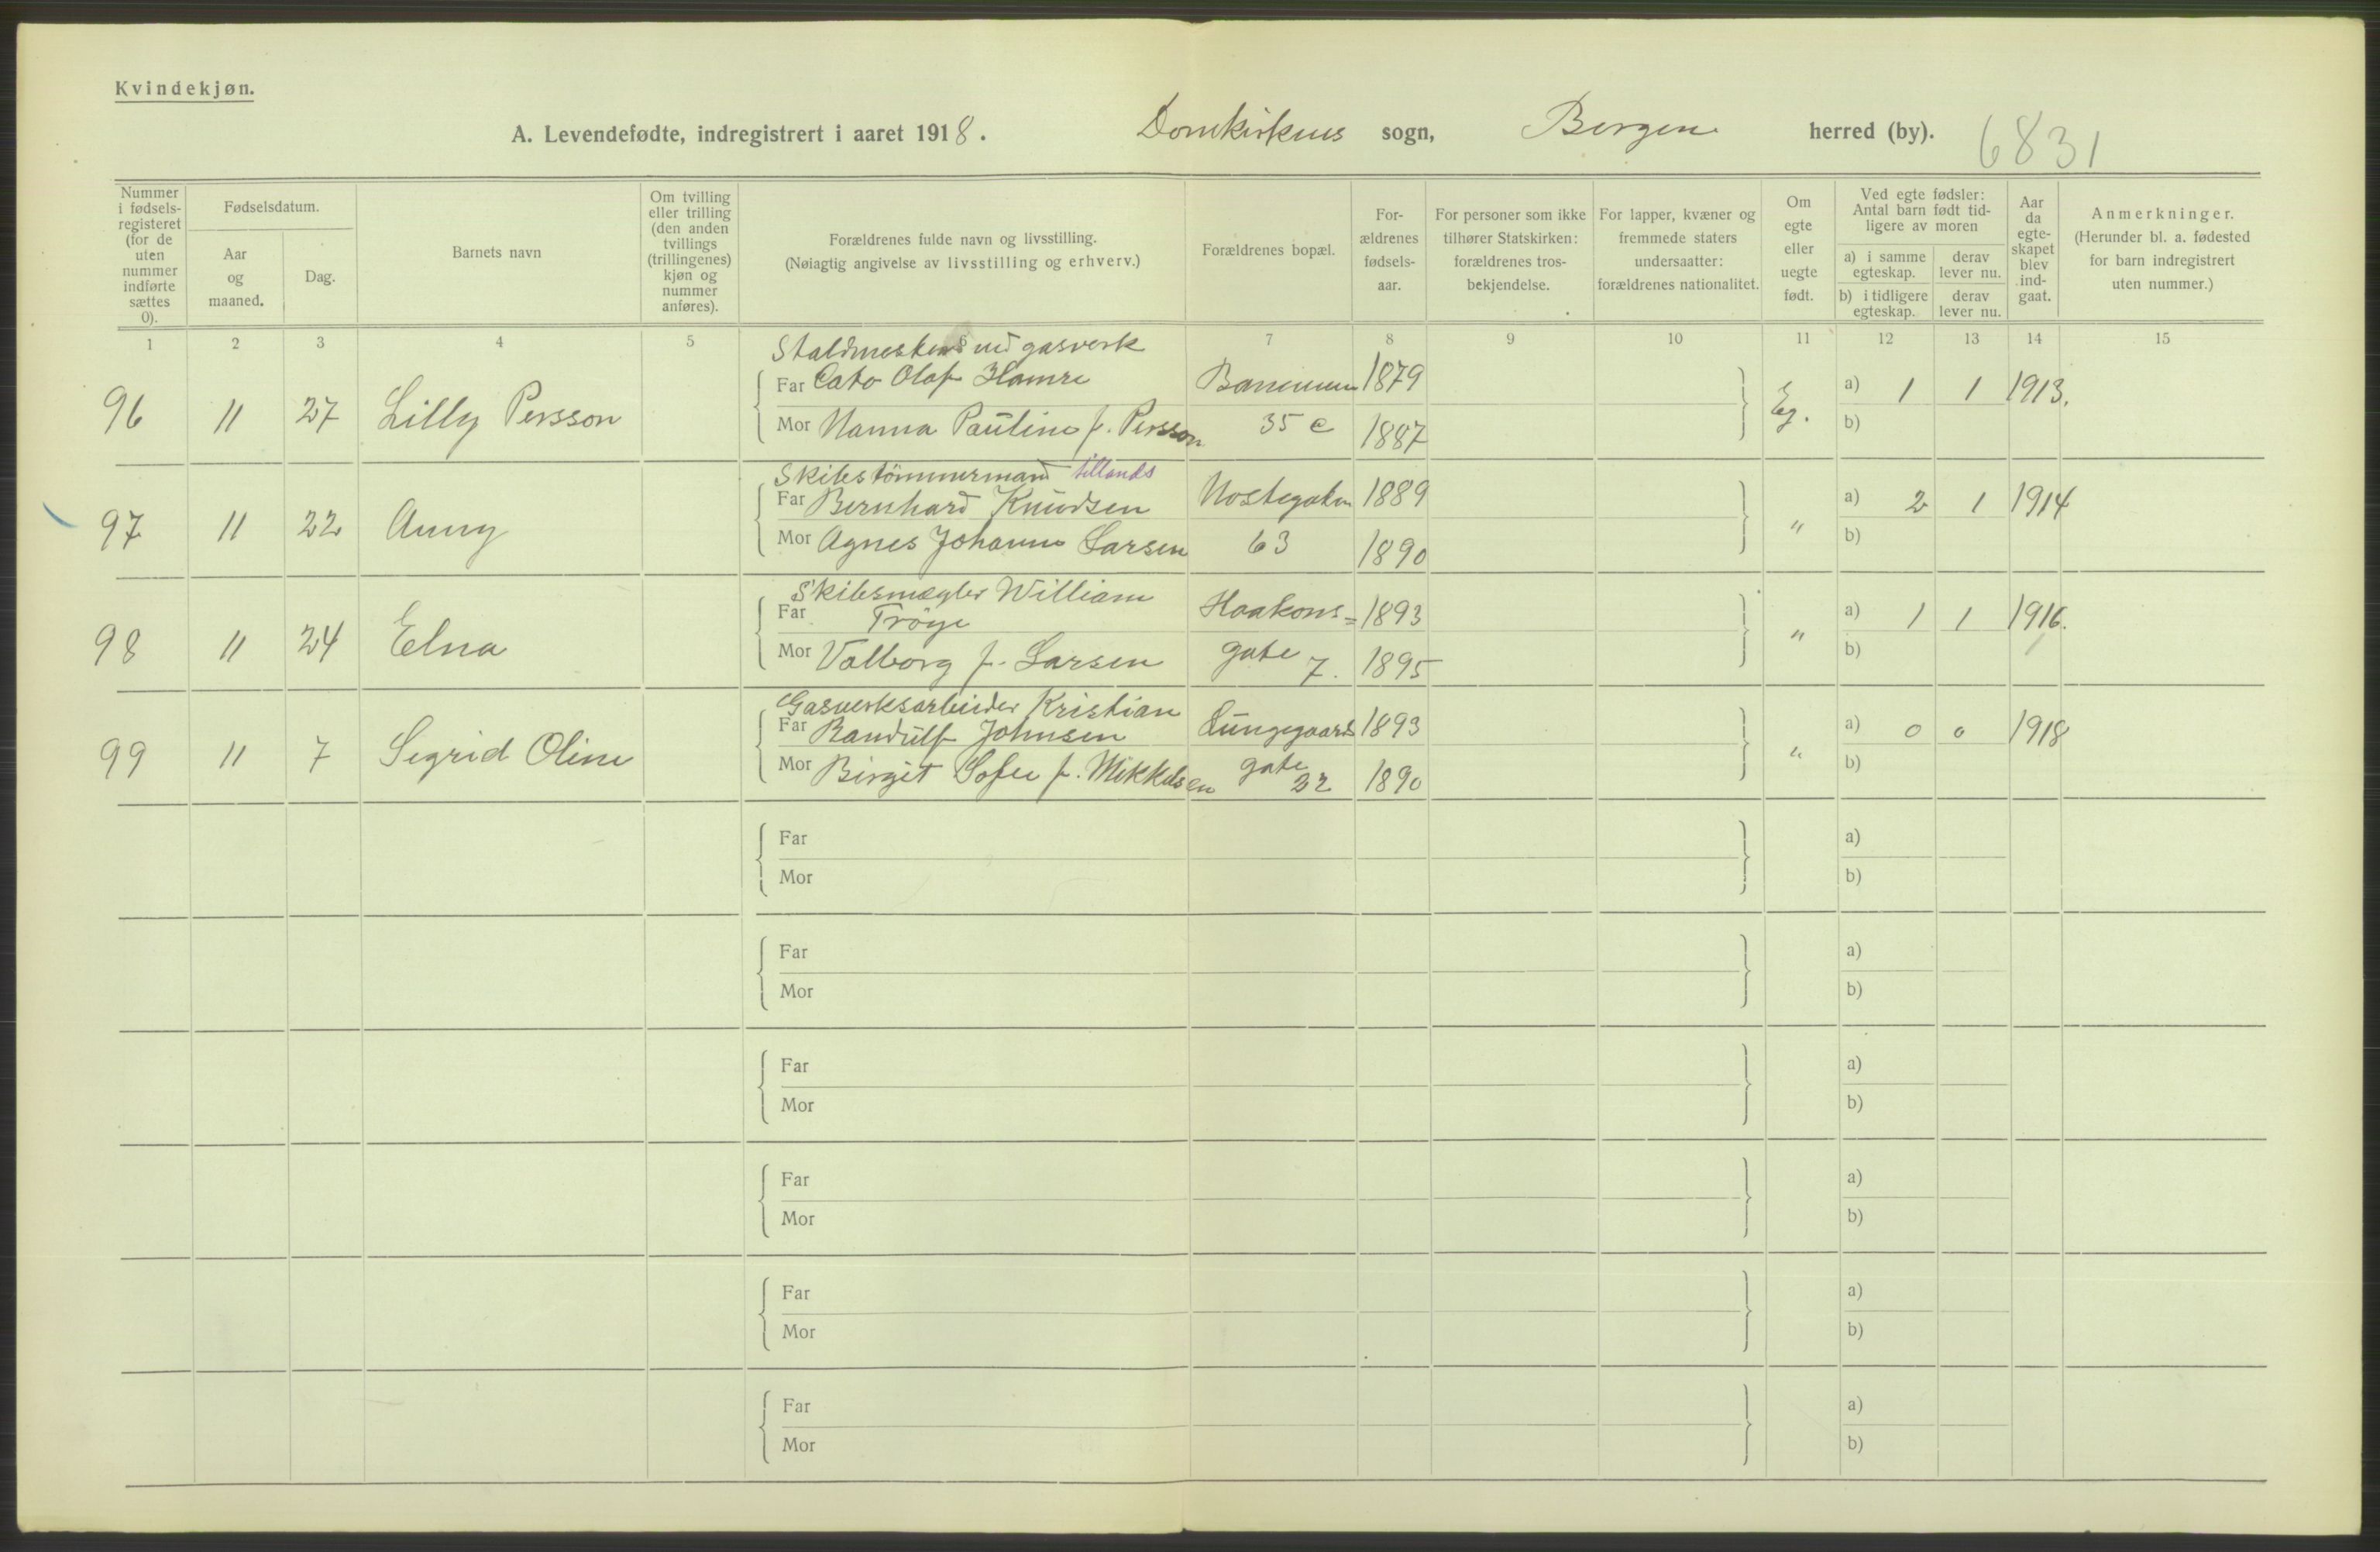 Kvindekjøn.
A. Levendefødte, indregistrert i aaret 1918. Domkirkens sogn, Bergen herred (by). 6831
Nummer i fødselsregisteret (for de uten nummer indførte sættes 0).
Fødselsdatum.
Aar og maaned.
Dag.
Barnets navn
Om tvilling eller trilling (den anden tvillings (trillingenes) kjøn og nummer anføres).
Forældrenes fulde navn og livsstilling.
(Nøiagtig angivelse av livsstilling og erhverv.)
Forældrenes bopæl.
For-ældrenes fødsels-aar.
For personer som ikke tilhører Statskirken: forældrenes tros-bekjendelse.
For lapper, kvæner og fremmede staters undersaatter: forældrenes nationalitet.
Om egte eller uegte født.
Ved egte fødsler: Antal barn født tid-ligere av moren
a) i samme egteskap.
derav lever nu.
b) i tidligere egteskap.
derav lever nu.
Aar da egte-skapet blev ind-gaat.
Anmerkninger.
(Herunder bl. a. fødested for barn indregistrert uten nummer.)
1 2 3 4 5 6 7 8 9 10 11 12 13 14 15
Staldmester ved gasverk
96 11 27 Lilly Persson Far Cato Olaf Hamre 1879 Eg. a) 1 1 1913.
Mor Nanna Pauline f. Persson 35 c 1887 b)
Skibstömmermand tillands
97 11 22 Anny Far Bernhard Knudsen Nostegaten 1889 " a) 2 1 1914
Mor Agnes Johanne Larsen 63 1890 b)
Skibsmægler William
98 11 24 Elna Far Tröye Haakons= 1893 " a) 1 1 1916.
Mor Valborg f. Larsen gate 7. 1895 b)
Gasverksarbeider Kristian
99 11 7 Sigrid Oline Far Randulf Johnsen Lungegaards 1893 " a) 0 0 1918
Mor Birgit Sofie f. Mikkelsen gate 32 1890 b)
Far a)
Mor b)
Far a)
Mor b)
Far a)
Mor b)
Far a)
Mor b)
Far a)
Mor b)
Far a)
Mor b)